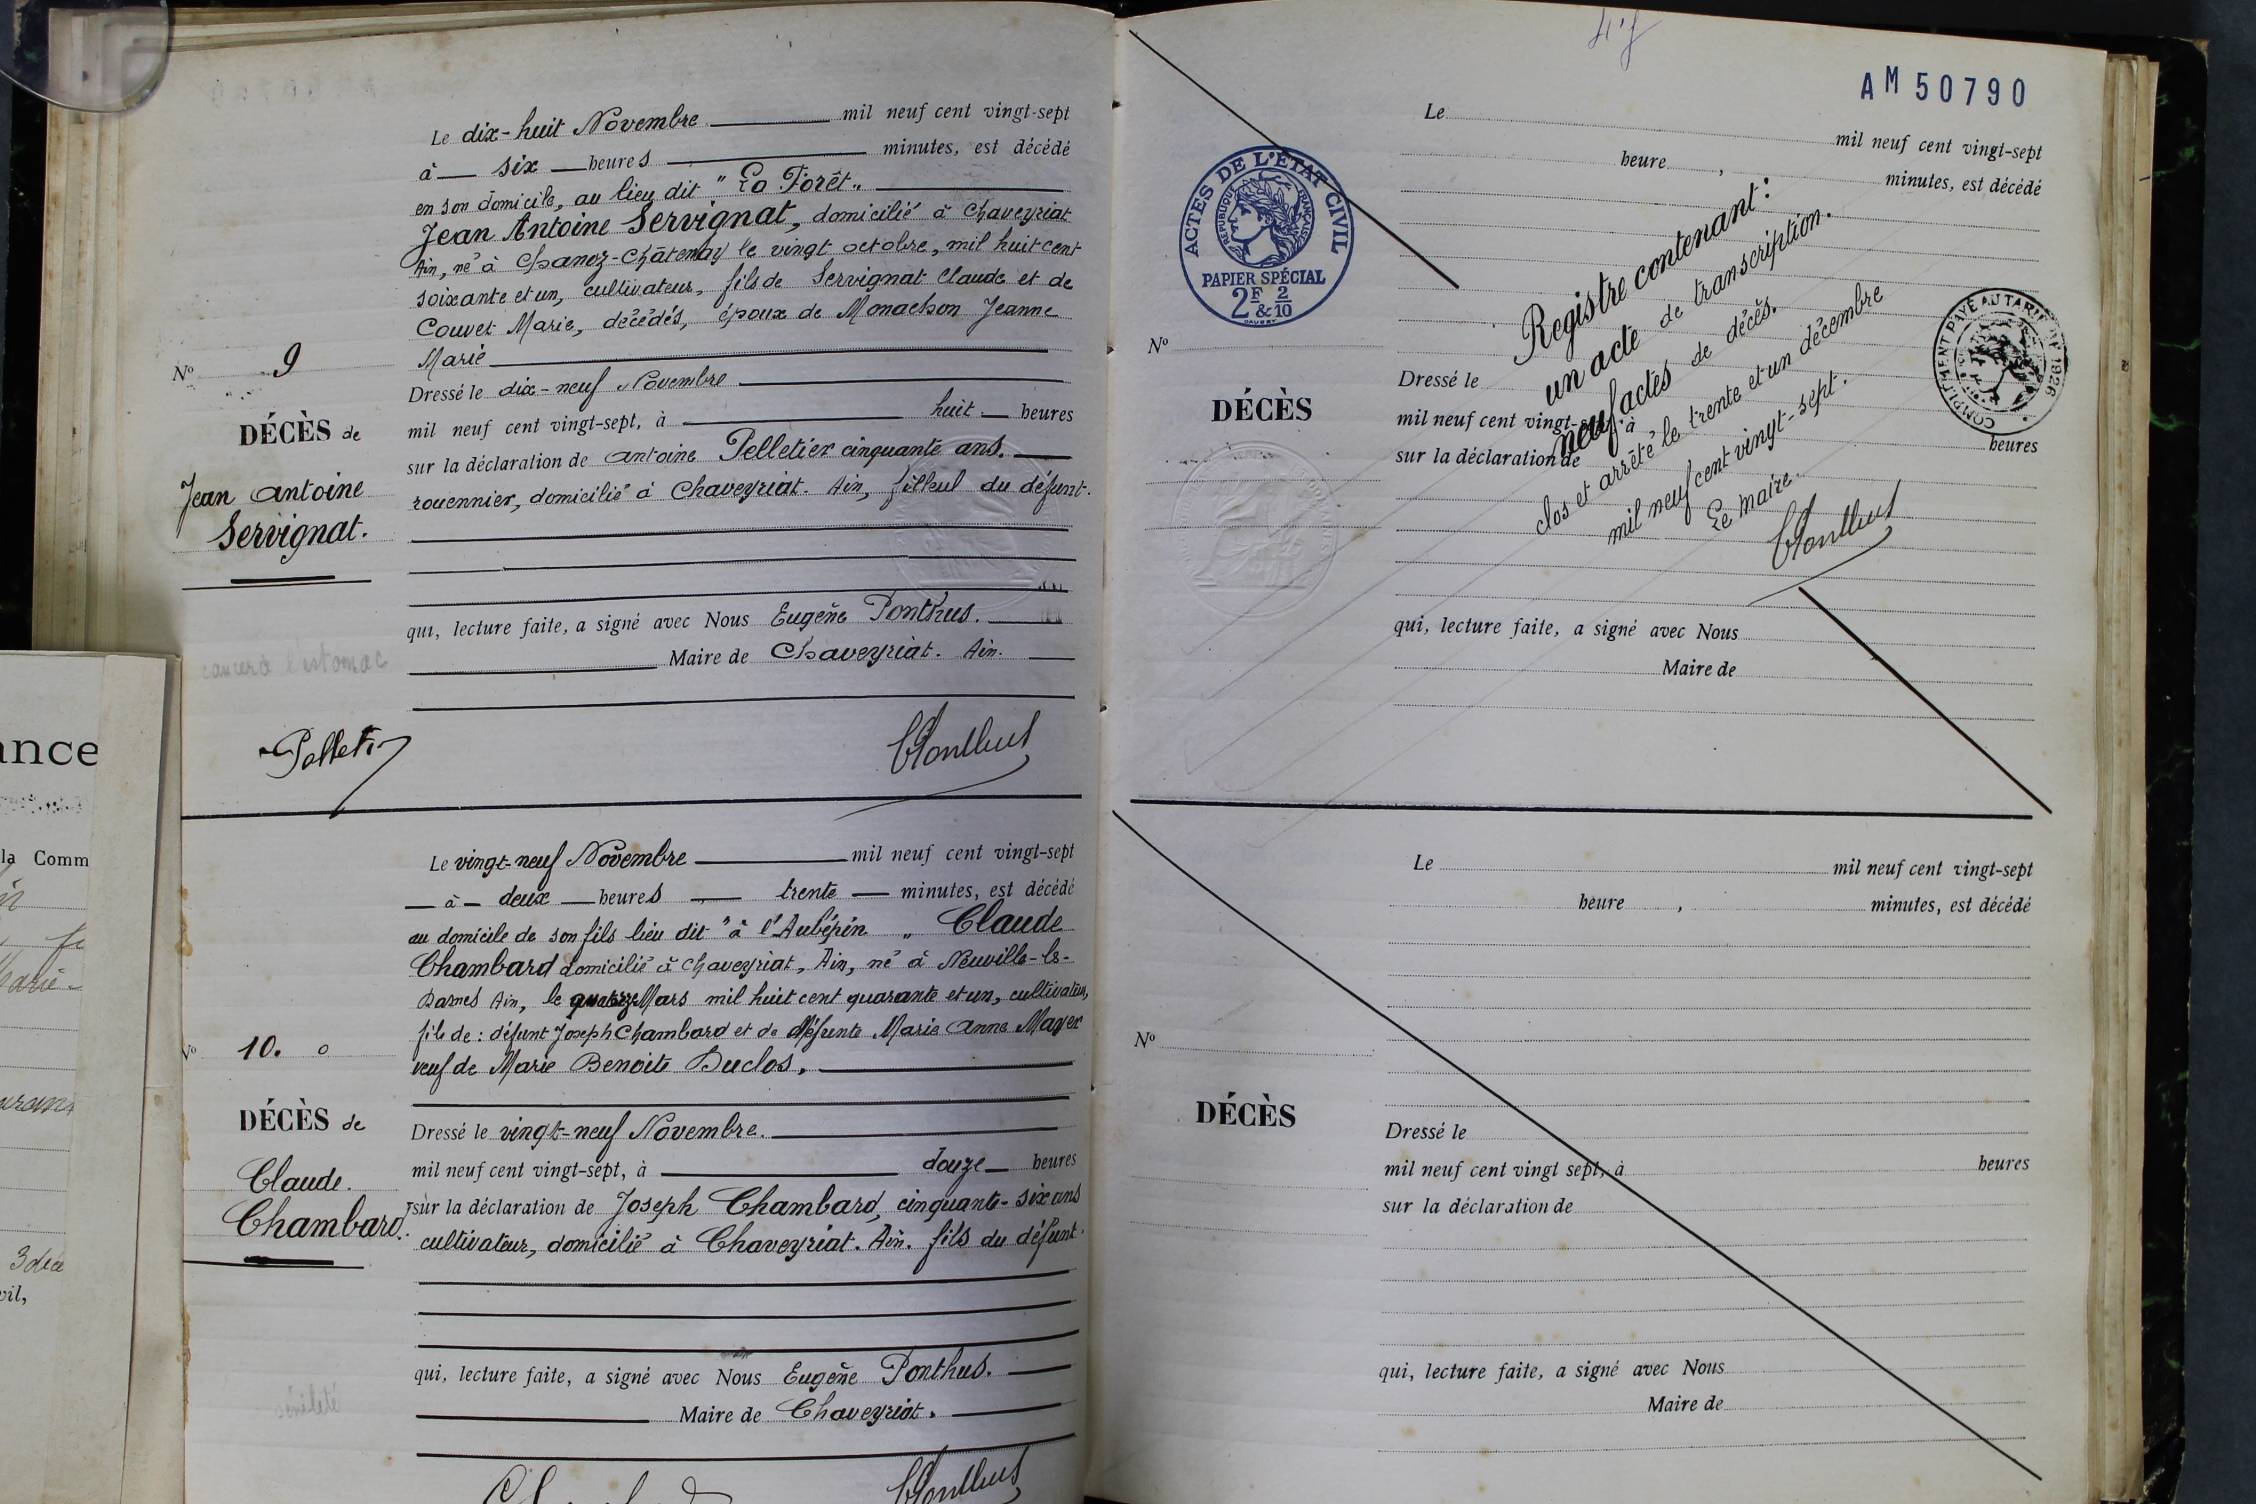 Le dix-huit Novembre mil neuf cent vingt-sept
à six heures minutes, est décédé
en son domicile, au lieu dit "La Forêt"
Jean Antoine Servignat, domicilié à Chaveyriat
Ain, né à Chanoz-Châtenay le vingt octobre, mil huit cent
soixante et un, cultivateur, fils de Servignat Claude et de
Couvet Marie, décédés, époux de Monachon Jeanne
Marie
Nº 9
Dressé le dix-neuf Novembre
DÉCÈS de
mil neuf cent vingt-sept, à huit heures
Jean Antoine
Servignat.
sur la déclaration de Antoine Pelletier cinquante ans.
rouennier, domicilié à Chaveyriat. Ain, filleul du défunt.
qui, lecture faite, a signé avec Nous Eugène Ponthus.
Maire de Chaveyriat. Ain.
cancer à l'estomac
Ponthus
Le vingt-neuf Novembre mil neuf cent vingt-sept
à deux heures trente minutes, est décédé
au domicile de son fils lieu dit "à l'Aubépin" Claude
Chambard domicilié à Chaveyriat, Ain, né à Neuville-les-
Dames Ain, le Mars mil huit cent quarante et un, cultivateur,
fils de : défunt Joseph Chambard et de défunte Marie Anne Mayer
veuf de Marie Benoite Duclos.
Nº 10.
DÉCÈS de
Claude.
Chambard.
Dressé le vingt-neuf Novembre.
mil neuf cent vingt-sept, à douze heures
sur la déclaration de Joseph Chambard, cinquante-six ans
cultivateur, domicilié à Chaveyriat. Ain. fils du défunt.
qui, lecture faite, a signé avec Nous Eugène Ponthus.
Maire de Chaveyriat.
sénilité
Ponthus
ance
la Comm
3 déc
vil,
AM50790
Le
mil neuf cent vingt-sept
heure, minutes, est décédé
ACTES DE L'ÉTAT CIVIL
RÉPUBLIQUE FRANÇAISE
PAPIER SPÉCIAL
2F & 2/10
COMPLÉMENT PAYÉ AU TARIF DE 1926
Registre contenant :
un acte de transcription.
neuf actes de décès.
clos et arrêté le trente et un décembre
mil neuf cent vingt-sept.
Le maire.
Ponthus
Nº
DÉCÈS
Dressé le
mil neuf cent vingt-sept, à heures
sur la déclaration de
qui, lecture faite, a signé avec Nous
Maire de
Le mil neuf cent vingt-sept
heure, minutes, est décédé
Nº
DÉCÈS
Dressé le
mil neuf cent vingt sept, à heures
sur la déclaration de
qui, lecture faite, a signé avec Nous
Maire de